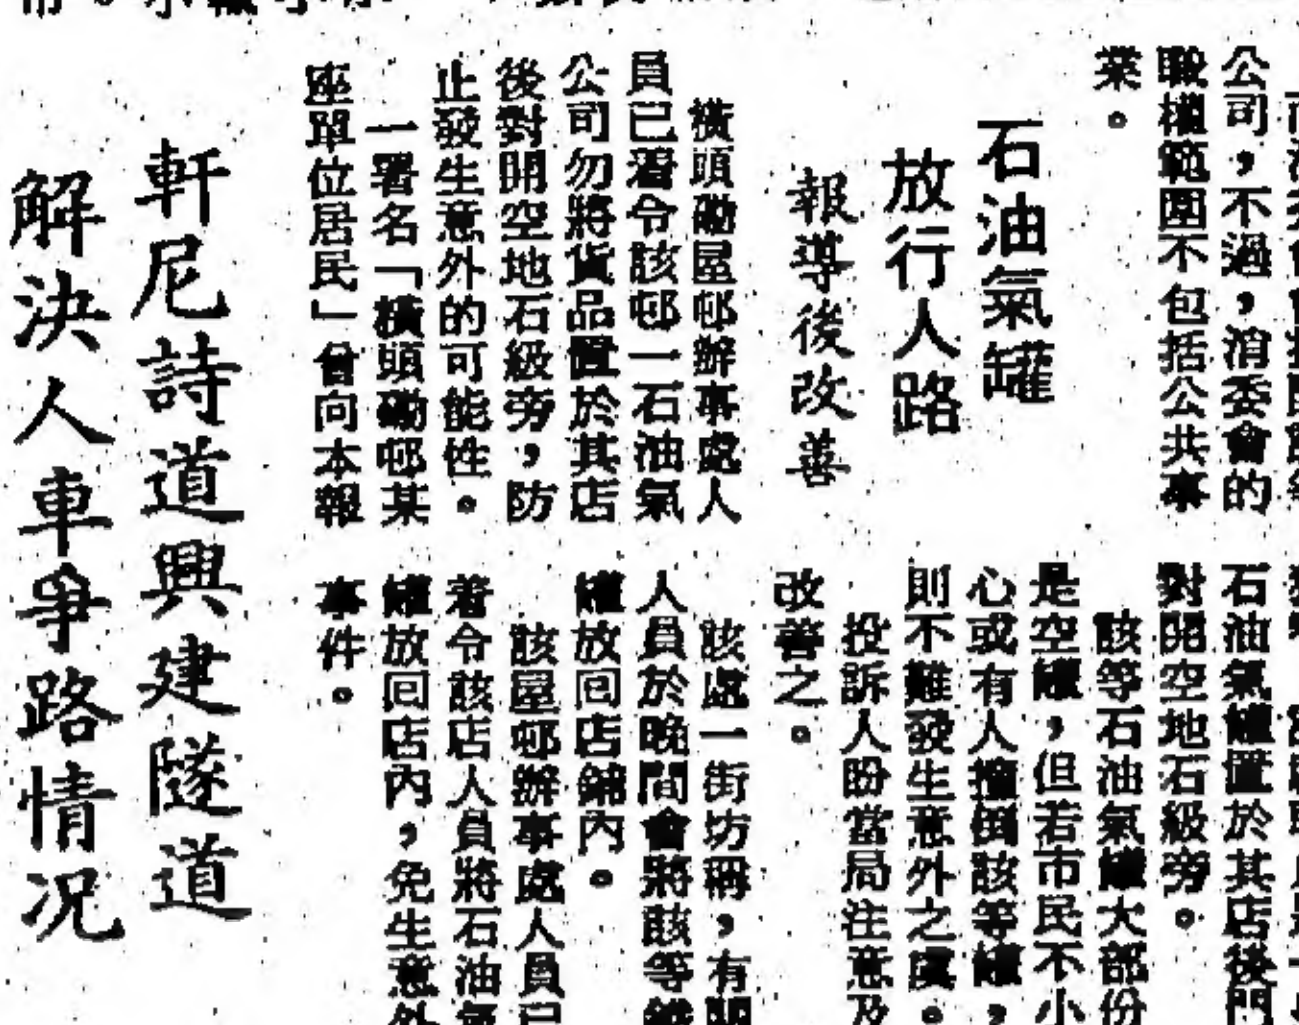 公司,不過,消委會的
職權範圍不包括公共事
業。
石油氣罐
放行人路
報導後改善
橫頭磡屋邨辦事處人
員已着令該邨一石油氣
公司勿將貨品置於其店
後對開空地石級旁,防
止發生意外的可能性。
一署名「橫頭磡邨某
座單位居民」曾向本報
石油氣罐置於其店後門
對開空地石級旁。
該等石油氣罐大部份
是空罐,但若市民不小
心或有人撞倒該等罐,
則不難發生意外之虞。
投訴人盼當局注意及
改善之。
該處一街坊稱,有關
人員於晚間會將該等鐵
罐放回店舖內。
該屋邨辦事處人員已
着令該店人員將石油氣
罐放回店內,免生意外
事件。
軒尼詩道興建隧道
解決人車爭路情況